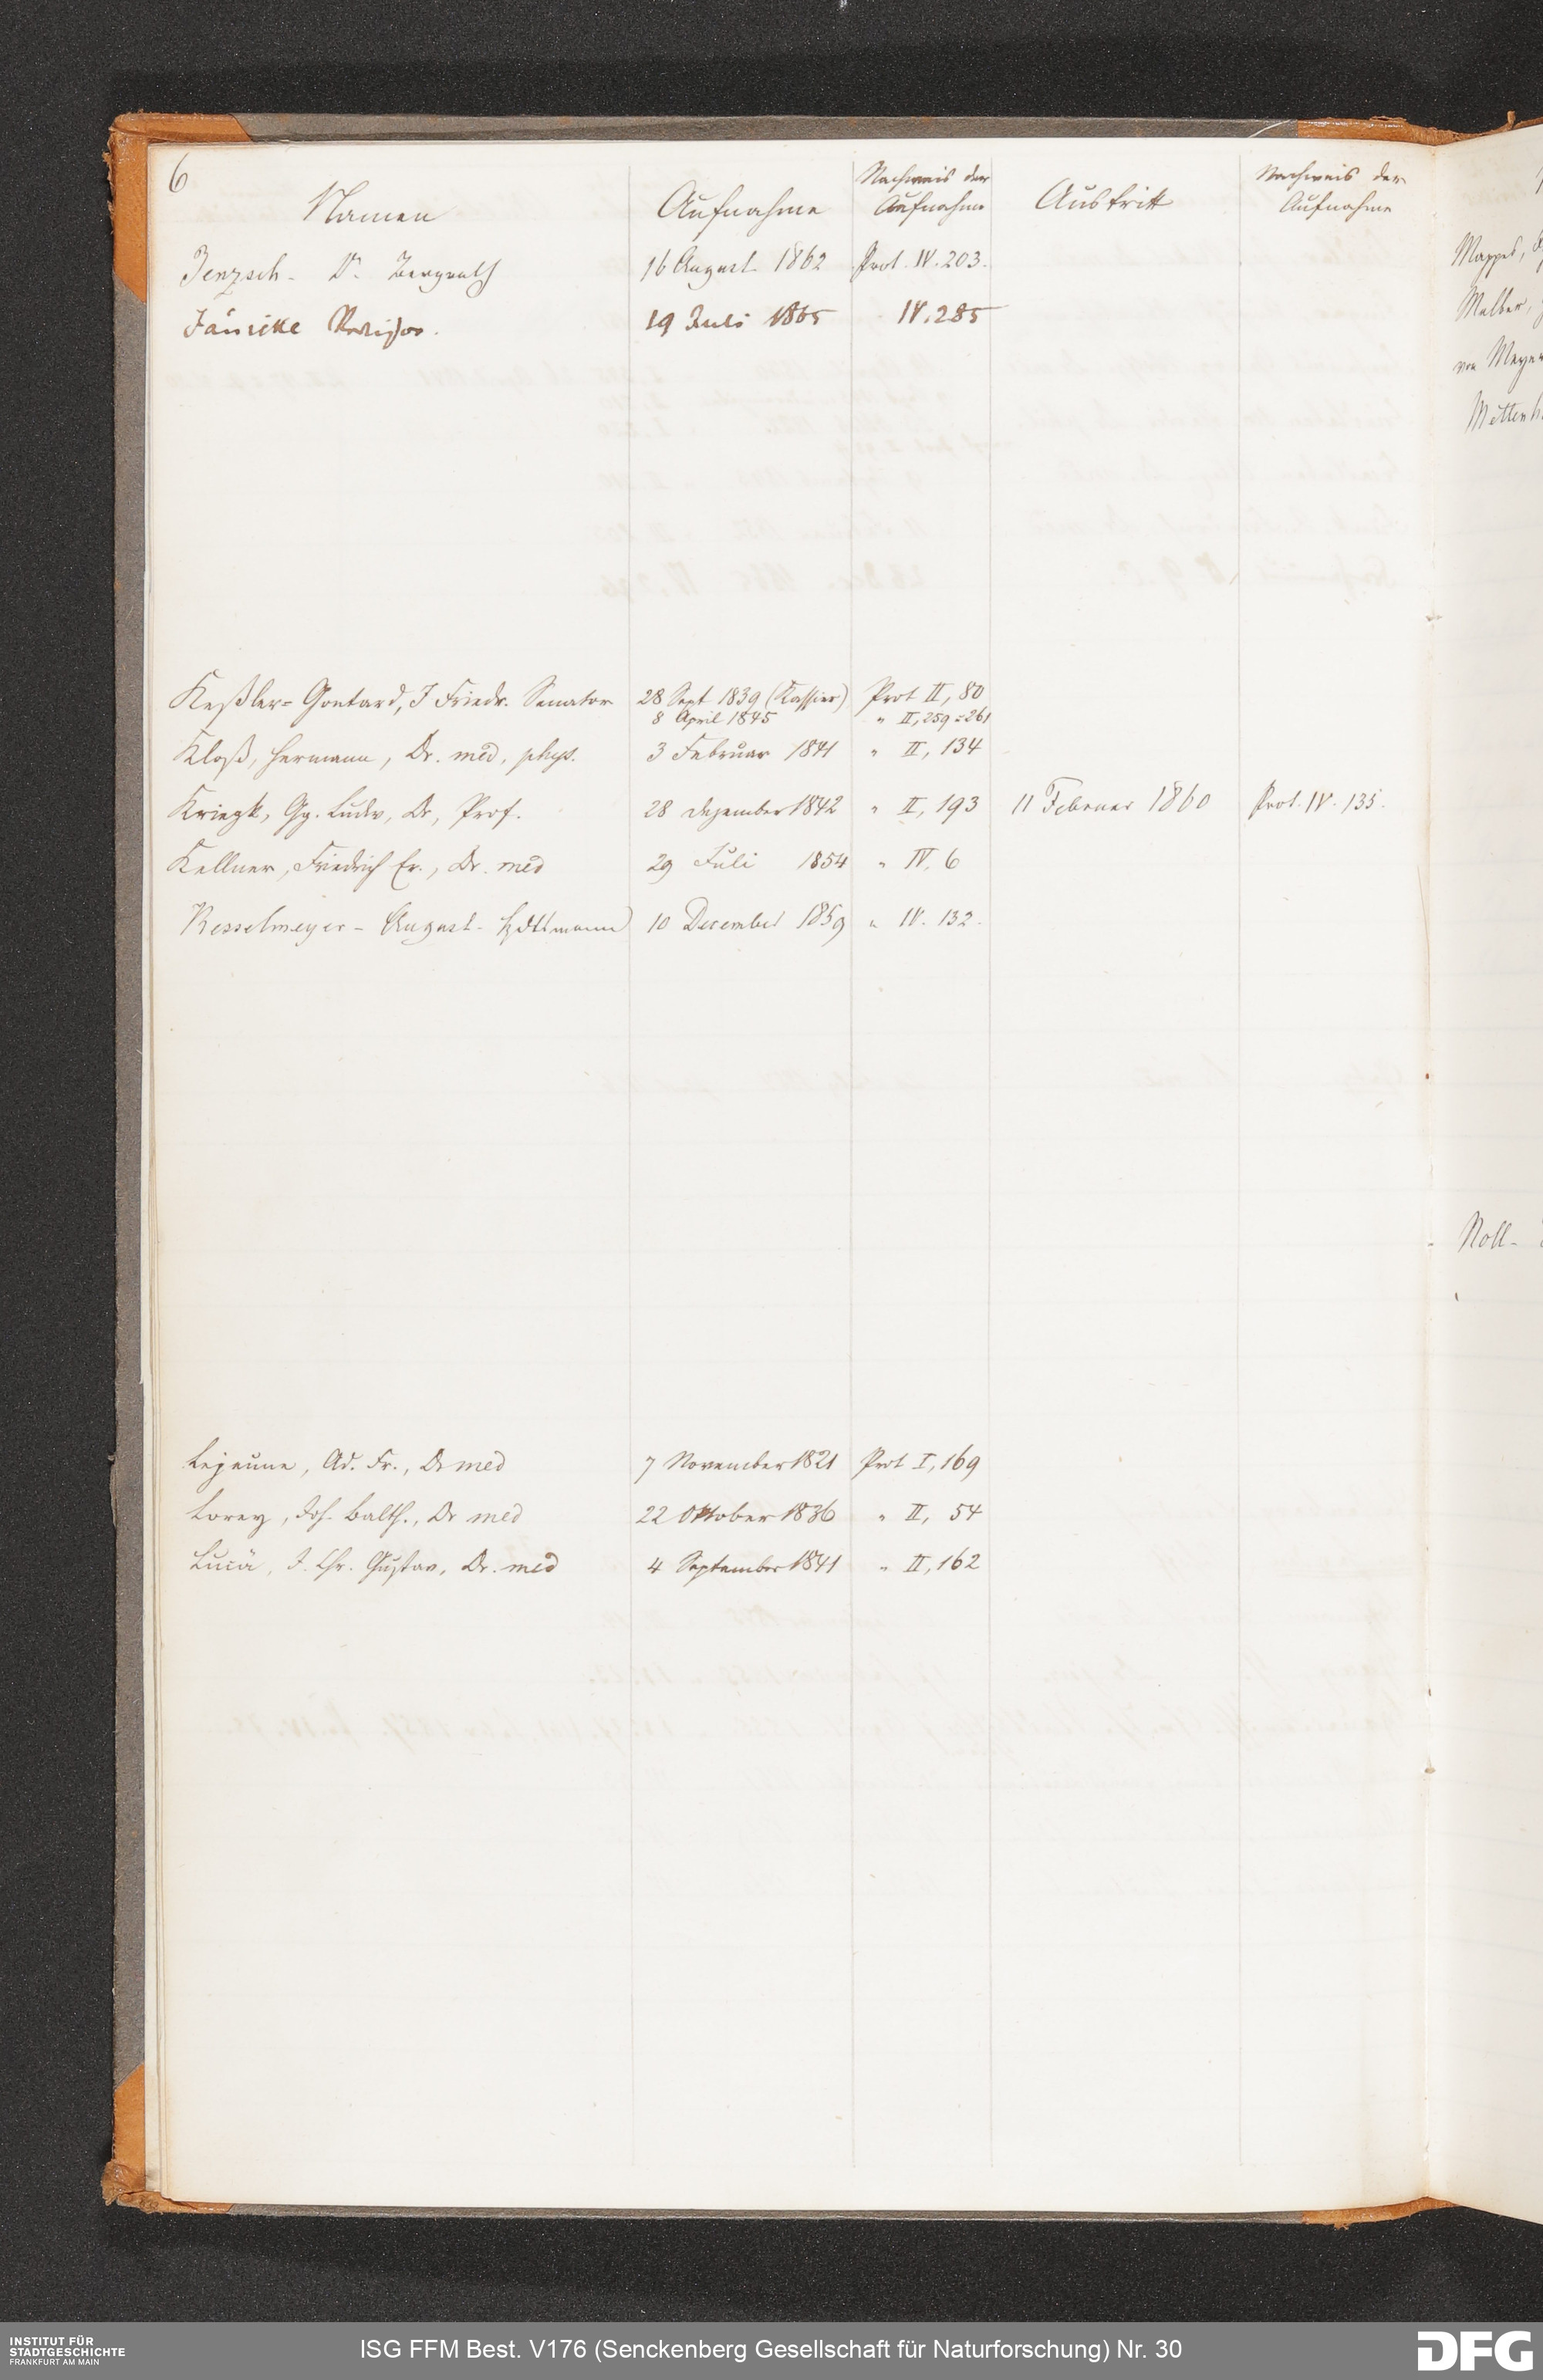 6
Namen Aufnahme Nachweis der Aufnahme Austritt Nachweis der Aufnahme
Jenzsch - Dr. Bergrath 16 August 1862 Prot. IV. 203.
Jänicke 19 Juli 1865 IV. 285
Keßler-Gontard, J Friedr. Senator 28 Sept 1839 (Kassier) Prot II, 80
8 April 1845 " II, 259-261
Kloß, Hermann, Dr. med, phys. 3 Februar 1841 " II, 134
Kriegk, Gg. Ludw, Dr, Prof. 28 Dezember 1842 " II, 193 11 Februar 1860 Prot. IV. 135.
Kellner, Friedrich Er., Dr. med 29 Juli 1854 " IV. 6
Kesselmeyer - August - Hdlsmann 10 December 1859 " IV. 132.
Lejeune, Ad. Fr., Dr med 7 November 1821 Prot I, 169
Lorey, Joh. Balth., Dr med 22 Oktober 1836 " II, 54
Lucä, J. Chr. Gustav, Dr. med 4 September 1841 " II, 162
Mappes,
von Meyer
Noll-
INSTITUT FÜR
STADTGESCHICHTE
FRANKFURT AM MAIN
ISG FFM Best. V176 (Senckenberg Gesellschaft für Naturforschung) Nr. 30
DFG